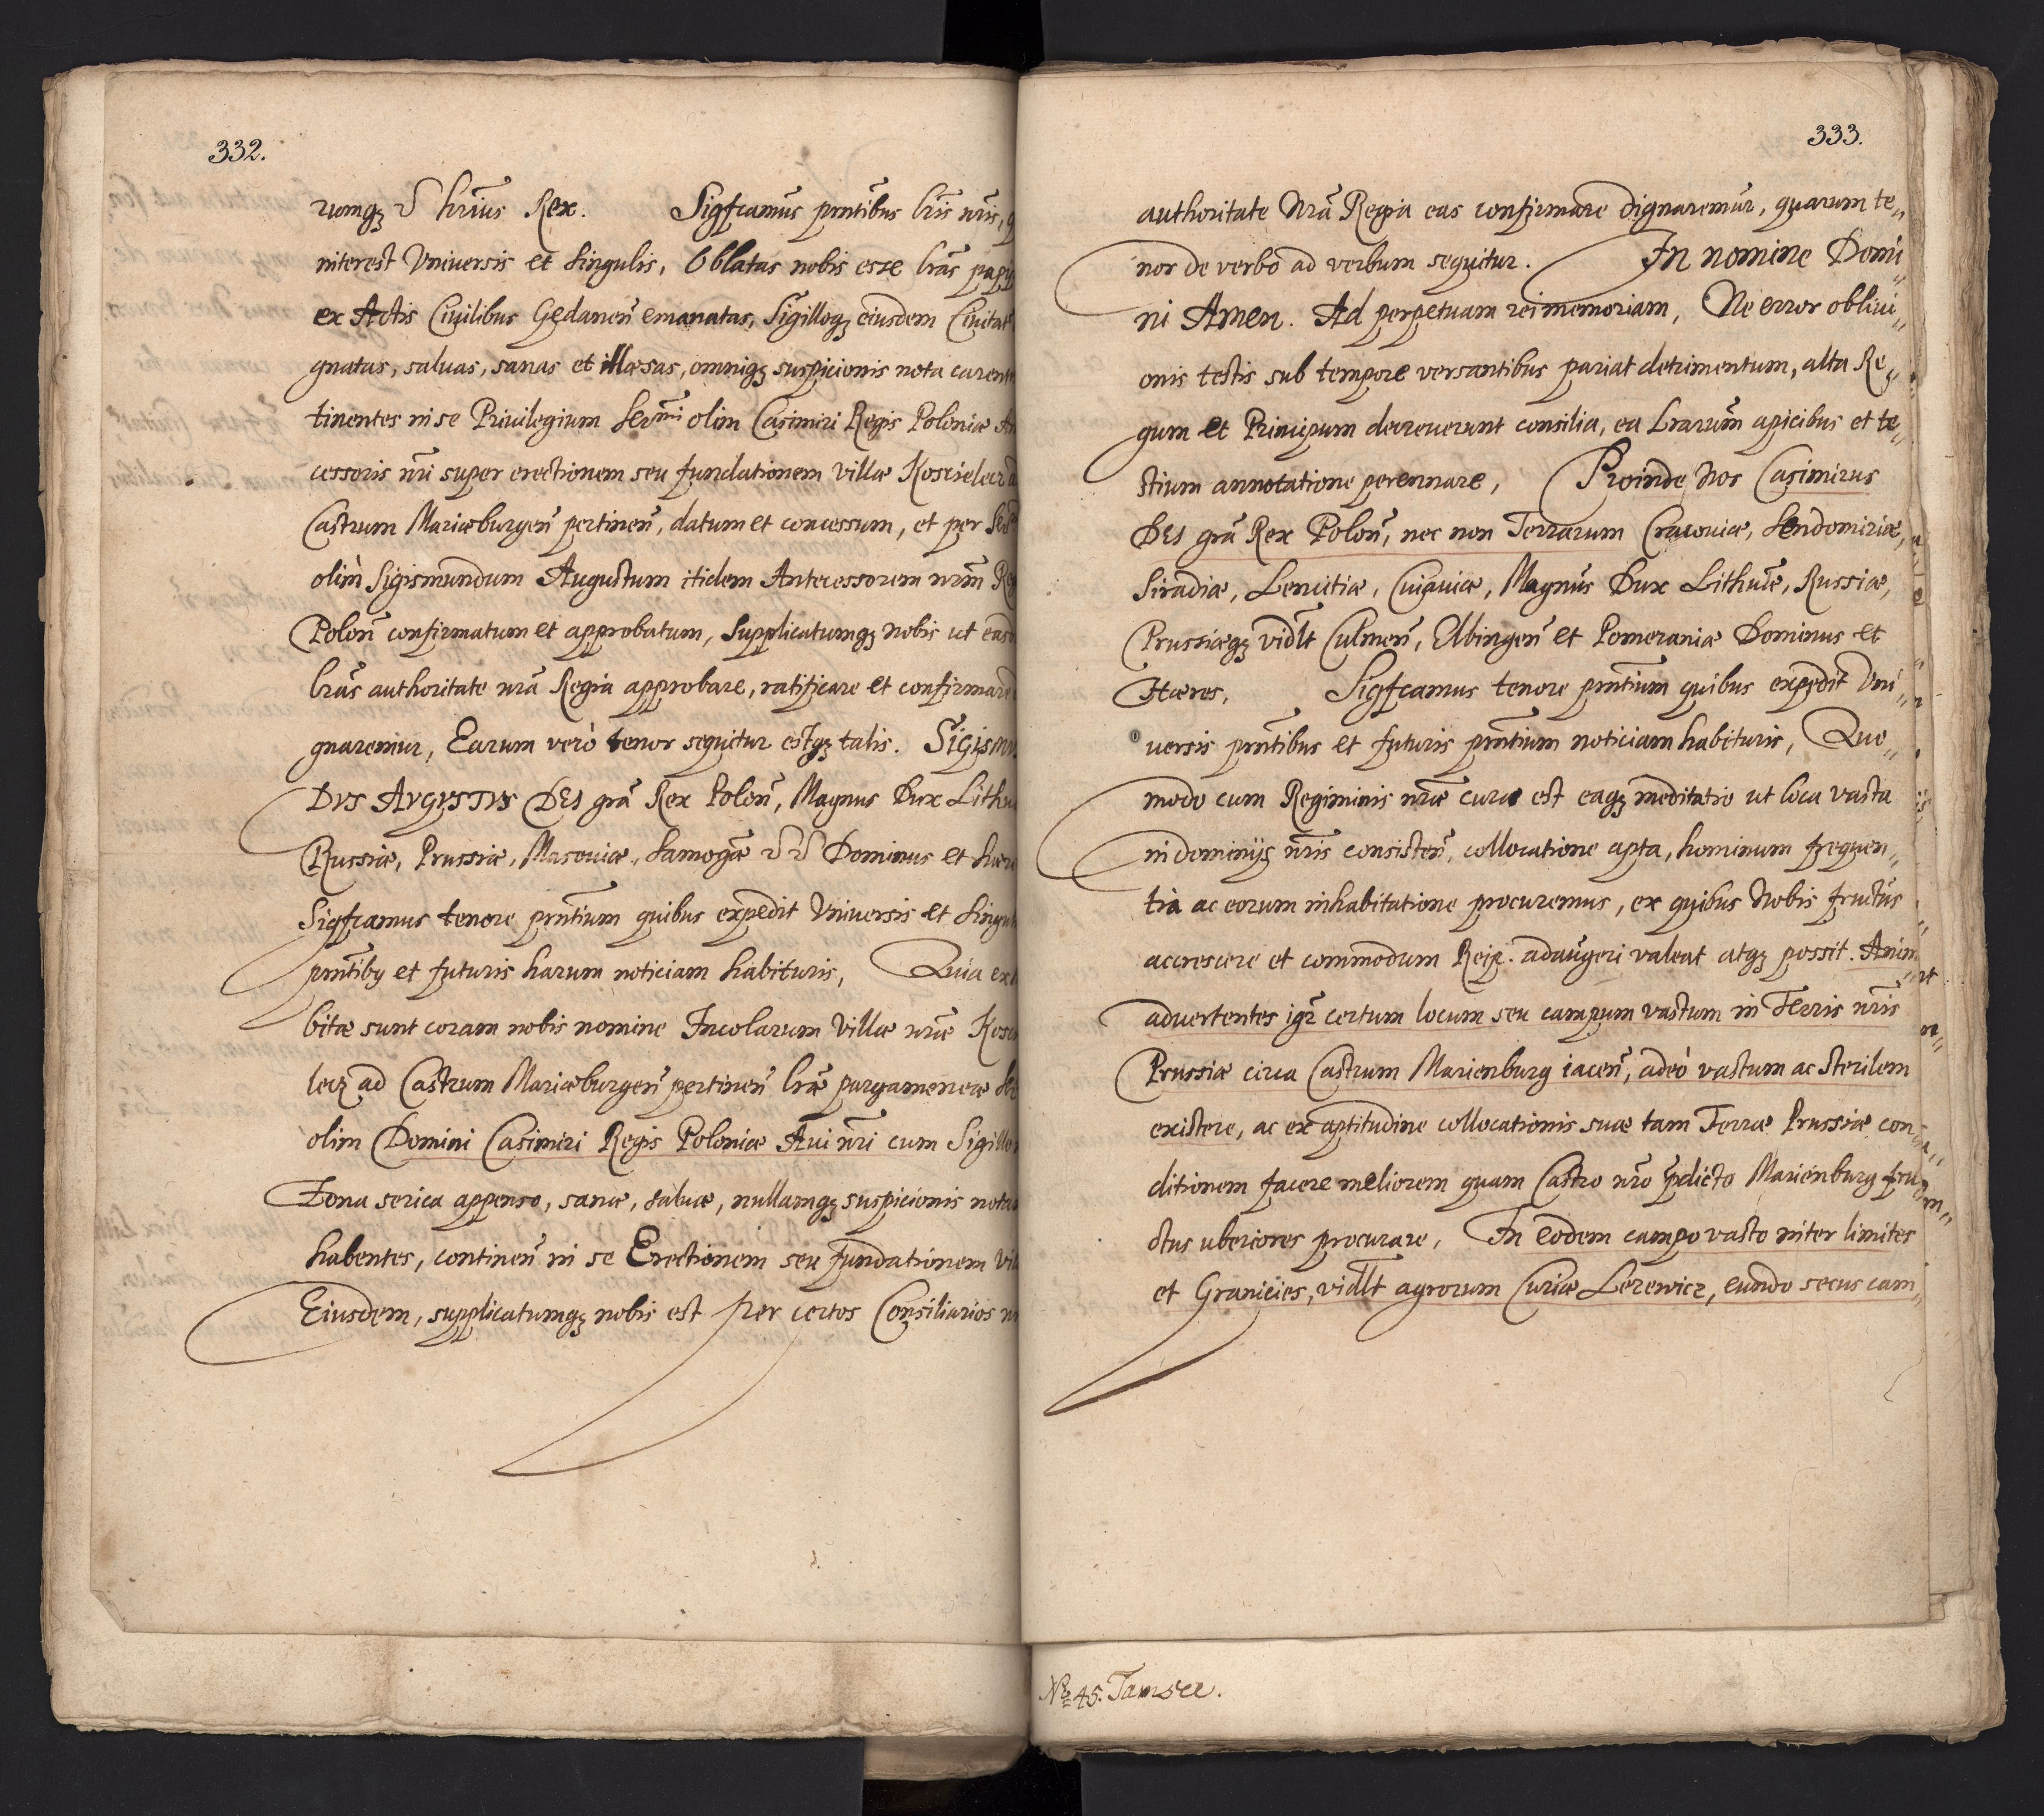 332.
rumq₃ & hr̃ius Rex. Sigfcamus pñtibus lr̃is nr̃is,
interest Vniuersis et singulis, Oblatas nobis esse lr̃as
ex Actis Ciuilibus Gedaneñ emanatas, Sigilloq₃ eiusdem
gnatas, saluas, sanas et illæsas, omniq₃ suspicionis nota
tinentes in se Priuilegium Serᵐⁱ olim Casimiri Regis Poloniæ
cessoris nr̃i super erectionem seu fundationem villæ
Castrum Mariæburgeñ pertineñ, datum et concessum, et per
olim Sigismundum Augustum itidem Antecessorem nr̃m
Poloñ confirmatum et approbatum, Supplicatumq₃ nobis ut
lr̃as authoritate nr̃a Regia approbare, ratificare et
gnaremur, Earum verò tenor sequitur estq₃ talis.
DVS AVGVSTVS DEI gr̃a Rex Poloñ, Magnus Dux
Russiæ, Prussiæ, Masouiæ, Samogæ & & Dominus et
Sigfcamus tenore pñtium quibus expedit Vniuersis et
pñtibꝫ et futuris harum noticiam habituris, Quia
bitæ sunt coram nobis nomine Incolarum Villæ nr̃æ
lecz ad Castrum Mariæburgeñ pertineñ lr̃æ pargameneæ
olim Domini Casimiri Regis Poloniæ Aui nr̃i cum
Zona serica appenso, sanæ, saluæ, nullamq₃ suspicionis
habentes, contineñ in se Erectionem seu fundationem
Eiusdem, supplicatumq₃ nobis est per certos Consiliarios
333.
authoritate Nr̃a Regia eas confirmare dignaremur, quarum te„
nor de verbo ad verbum sequitur. In nomine Domi„
ni Amen. Ad perpetuam rei memoriam, Ne error obliui„
onis testis sub tempore versantibus pariat detrimentum, alta Re„
gum et Principum decreuerunt consilia, ea Lrarum̃ apicibus et te„
stium annotatione perennare, Proinde Nos Casimirus
DEI gr̃a Rex Poloñ, nec non Terrarum Cracouiæ, Sendomiriæ,
Siradiæ, Lencitiæ, Cuiauiæ, Magnus Dux Lithuæ, Russiæ,
Prussiæq₃ vidlt Culmeñ, Elbingeñ et Pomeraniæ Dominus et
Hæres, Sigfcamus tenore pñtium quibus expedit Vni„
uersis pñtibus et futuris pñtium noticiam habituris, Quo„
modo cum Regiminis nr̃æ cura est eaq₃ meditatio ut loca vasta
in dominijs nr̃is consisteñ, collocatione apta, hominum frequen„
tia ac eorum inhabitatione procuremus, ex quibus Nobis fructus
accrescere et commodum Reip. adaugeri valeat atq₃ possit. Anim„
aduertentes igr̃ certum locum seu campum vastum in Terris nr̃is
Prussiæ circa Castrum Marienburg iaceñ, adeò vastum ac sterilem
existere, ac ex aptitudine collocationis suæ tam Terræ Prussiæ con„
ditionem facere meliorem quam Castro nr̃o p̃dicto Marienburg fru„
ctus uberiores procurare, In eodem campo vasto inter limites
et Granicies, vidlt agrorum Curiæ Lezewicz, eundo secus cam„
Nº 45. Tamsee.